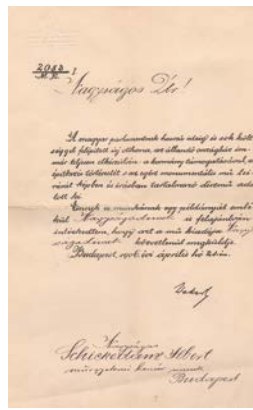 2083 I.
M. E.
Nagyságos Úr!
A magyar parlamentnek hosszú ideig és sok költ-
séggel felépített új otthona, az állandó országház im-
már teljesen elkészülvén a kormány támogatásával, az
építkezés történetét s az egész monumentális mű lei-
rását képben és írásban tartalmazó díszmű ada-
tott ki.
Ennek a munkának egy példányát emlé-
kül Nagyságodnak is felajánlván
intézkedtem, hogy azt a mű kiadója Nagy-
ságodnak közvetlenül megküldje.
Budapest, 1906. évi április hó
Nagyságos
Schickedanz Albert
műegyetemi tanár úrnak
Budapest